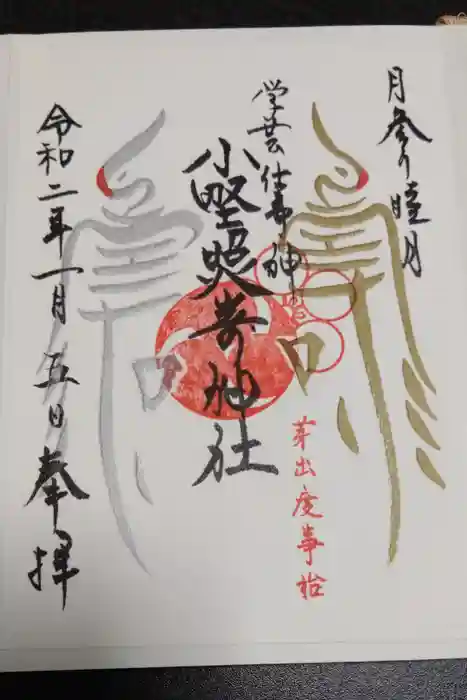 月参り睦月
学芸仕事の神
小野照崎神社
芽出度事始
令和二年一月五日奉拝